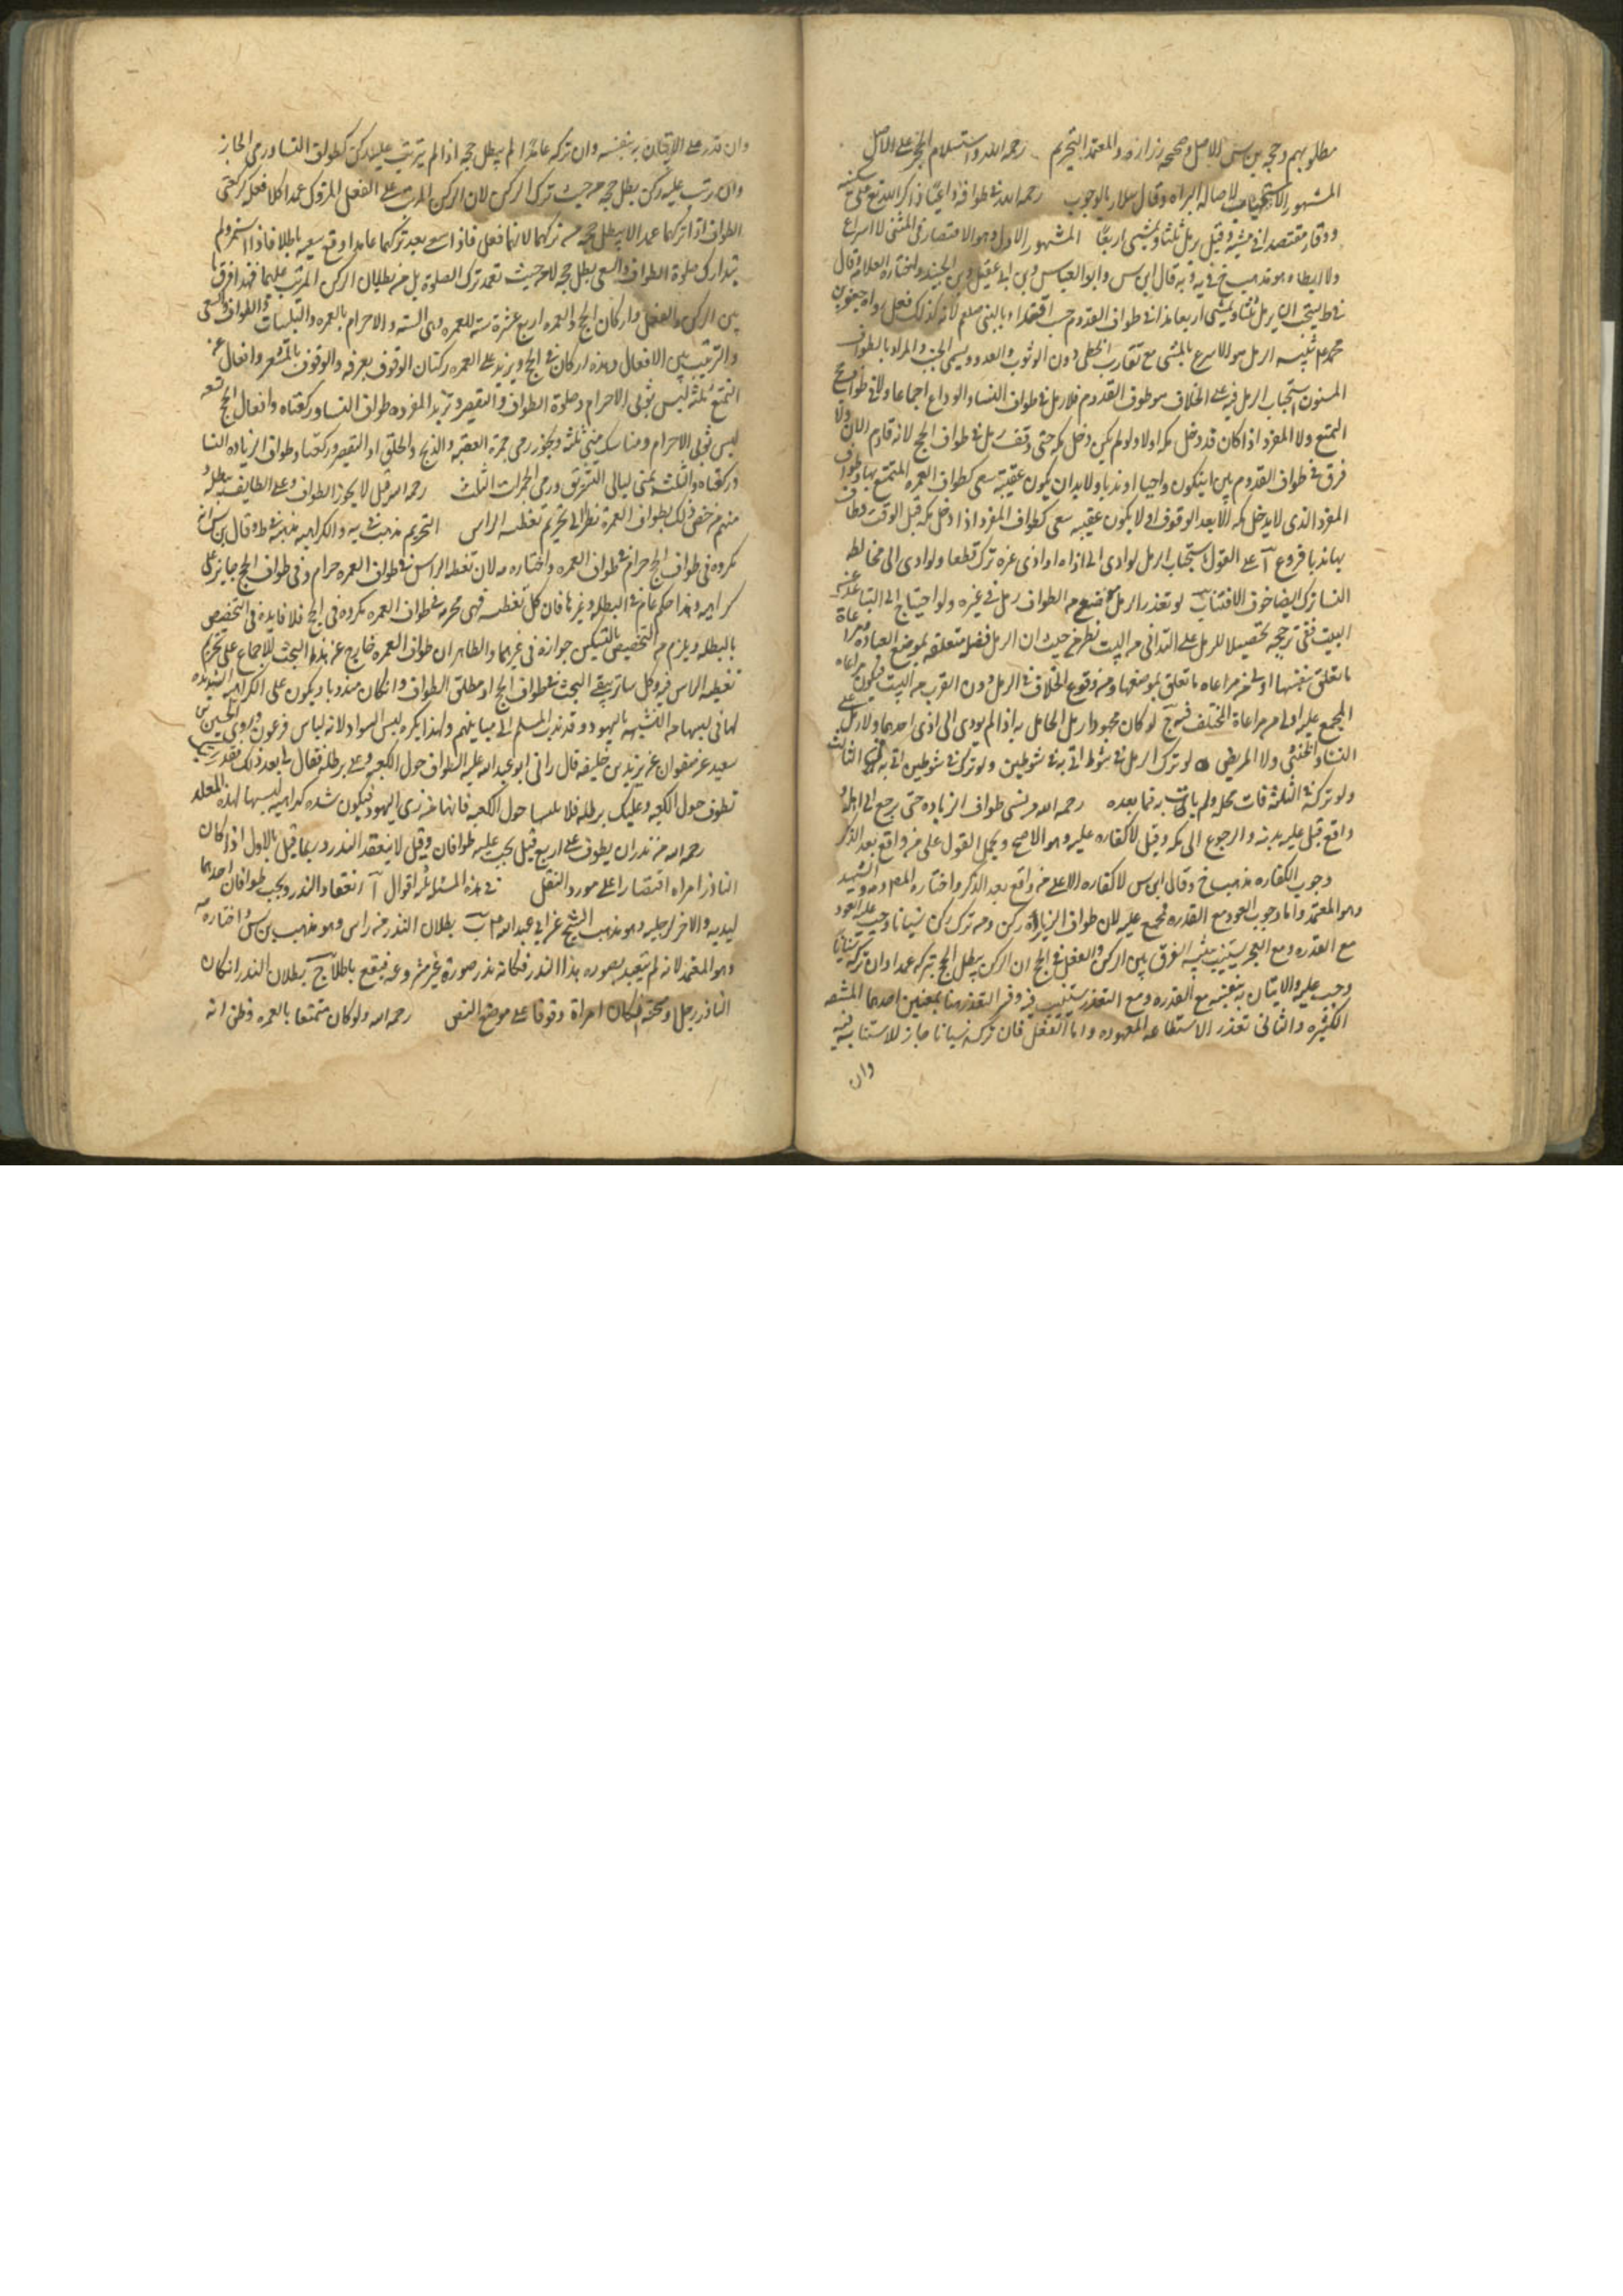 مطلوبهم وحجة بن س الاصل وصححه زرارة والمعتمد التحريم رحمه الله واستلام الحجر على الاصل
المشهور الاستحباب لاصالة البراه وقال سلار بالوجوب رحمه الله في طوافه داعيا ذاكرا لله تع على سكينة
ووقار مقتصدا في مشيه وقيل يرمل ثلثا ويمشي اربعا المشهور الاول وهو الاقتصار في المشي لا اسراع
ولا ابطاء وهو مذهب خ في يه وبه قال ابن س وابو العباس وابن ابي عقيل وبن الجنيد واختاره العلامه وقال
في ط يستحب ان يرمل ثلثا ويمشي اربعا هذا في طواف القدوم حسب اقتداء بالنبي صلعم لانه كذلك فعل رواه جعفر بن
محمد عم تنبيه الرمل هو الاسرع بالمشي مع تقارب الخطى دون الوثوب والعدو ويسمى الخبب والمراد بالطواف
المسنون استحباب الرمل فيه على الخلاف هو طوف القدوم فلا رمل في طواف النسا والوداع اجماعا ولا في طواف حج
التمتع ولا المفرد اذا كان قد دخل مكه اولا ولو لم يكن دخل مكه حتى وقف رمل في طواف الحج لانه قادم الان ولا
فرق في طواف القدوم بين ان يكون واجبا او ندبا ولا بد ان يكون عقيبه سعي كطواف العمره المتمتع بها وطواف
المفرد الذي لا يدخل مكه الا بعد الوقوف اي لا يكون عقيبه سعي كطواف المفرد اذا دخل مكه قبل الوقت فطاف
بها ندبا فروع آ على القول باستحباب الرمل لو ادى الى اذاه او اذى غيره ترك قطعا ولو ادى الى مخالطه
النسا ترك ايضا خوف الافتتان ب لو تعذر الرمل في موضع من الطواف رمل في غيره ولو احتاج الى التباعد عن
البيت ففي ترجيحه تحصيلا للرمل على التداني من البيت نظر من حيث ان الرمل فضل متعلقه بموضع العباده ومراعاة
ما تعلق بنفسها اولى من مراعاه ما تعلق بموضعها ومن وقوع الخلاف في الرمل دون القرب من البيت فيكون مراعاه
المجمع عليه اولى من مراعاة المختلف فيه ج لو كان محمولا رمل الحامل به اذا لم يودي الى اذى احدهما ولا رمل على
النساء والخنثى ولا المريض د لو ترك الرمل في شوط اتى به في شوطين ولو تركه في شوطين اتى به في الثالث
ولو تركه في الثلثة فات محله ولم يات به فيما بعده رحمه الله ومن نسي طواف الزياده حتى رجع الى اهله و
واقع قيل عليه بدنه والرجوع الى مكه وقيل لا كفاره عليه وهو الاصح ويحمل القول على من واقع بعد الذكر
وجوب الكفاره مذهب خ وقال ابن س لا كفاره الا على من واقع بعد الذكر واختاره المص والشهيد
وهو المعتمد واما وجوب العود مع القدره فمجمع عليه لان طواف الزيارة ركن ومن ترك ركن نسيانا وجب عليه العود
مع القدره ومع العجز يستنيب تنبيه الفرق بين الركن والفعل في الحج ان الركن يبطل الحج بتركه عمدا وان تركه نسيانا
وجب عليه الاتيان به بنفسه مع القدره ومع التعذر يستنيب فيه وفسر التعذر هنا بمعنيين احدهما المشقه
الكثيره والثاني تعذر الاستطاعه المعهوده واما الفعل فان تركه نسيانا جاز الاستنابه فيه
وان
وان قدر على الاتيان به بنفسه وان تركه عامدا لم يبطل حجه اذا لم يترتب عليه ركن كطواف النسا ورمي الجمار
وان ترتب عليه ركن بطل حجه من حيث ترك الركن لان الركن المرتب على الفعل المتروك عمدا كلا فعل كركعتي
الطواف اذا تركهما عمدا لا يبطل حجه من تركهما لانهما فعل فاذا سعى بعد تركهما عامدا وقع سعيه باطلا فاذا استمر ولم
يتدارك صلوة الطواف والسعي بطل حجه لا من حيث تعمد ترك الصلوة بل من بطلان الركن المرتب عليهما فهذا فرق ما
بين الركن والفعل واركان الحج والعمره اربع عشرة سته للعمره وهي النيه والاحرام بالعمره والتلبيات والطواف والسعي
والترتيب بين الافعال وهذه اركان في الحج ويزيد على العمره ركنان الوقوف بعرفه والوقوف بالمشعر وافعال عمرة
التمتع ثلثه لبس ثوبي الاحرام وصلوة الطواف والتقصير وتزيد المفرده طواف النسا وركعتاه وافعال الحج تسعه
لبس ثوبي الاحرام ومناسك منى ثلثه ويجوز رمي جمرة العقبه والذبح والحلق او التقصير وركعتا وطواف الزياده النسا
وركعتاه والثلثه بمنى ليالي التشريق ورمي الجمرات الثلث رحمه الله قيل لا يجوز الطواف وعلى الطايف برطله و
منهم من خص ذلك بطواف العمرة نظرا الى تحريم تغطيه الراس التحريم مذهبه في يه والكراهيه مذهبه في ط وقال بن س انه
مكروه في طواف الحج حرام في طواف العمره واختاره مه لان تغطيه الراس في طواف العمره حرام وفي طواف الحج جايز على
كراهيه وهذا حكم عام في البطله وغيرها فان كل تغطيه فهي محرمه في طواف العمره مكروه في الحج فلا فايده في التخصيص
بالبطله ويلزم من التخصيص بالتنكيس جوازه في غيرهما والظاهر ان طواف العمره خارج عن هذا البحث للاجماع على تحريم
تغطيه الراس فيه وكل ساتر يبقى البحث في طواف الحج او مطلق الطواف وان كان مندوبا ويكون على الكراهيه الشديده
لما في لبسها من التشبيه باليهود وقد ندب المسلم الى مباينهم ولهذا يكره لبس السواد لانه لباس فرعون وروى الحسين بن
سعيد عن صفوان عن يزيد بن خليفه قال راني ابو عبد الله عليه السلام اطوف حول الكعبه وعلي برطله فقال لي بعد ذلك قد رايتك
تطوف حول الكعبه وعليك برطله فلا تلبسها حول الكعبه فانها من زي اليهود فيكون شده كراهيه لبسها لهذه العله
رحمه الله من نذر ان يطوف على اربع قيل يجب عليه طوافان وقيل لا ينعقد النذر وربما قيل بالاول اذا كان
الناذر امراه اقتصارا على مورد النقل في هذه المسئله ثلثه اقوال آ انعقاد النذر ويجب طوافان احدهما
ليديه والاخر لرجليه وهو مذهب الشيخ عن ابي عبد الله عم ب بطلان النذر من راس وهو مذهب بن س واختاره مه
وهو المعتمد لانه لم يتعبد بصوره هذا النذر فكانه نذر صورة غير مشروعه فيقع باطلا ج بطلان النذر ان كان
الناذر رجل وصحته ان كان امراة وقوفا على موضع النص رحمه الله ولو كان متمتعا بالعمره وظن انه